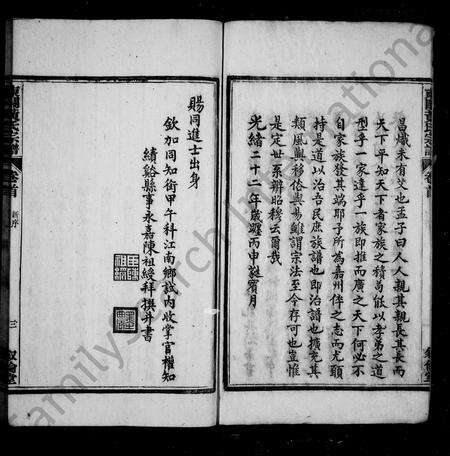 昌熾未有艾也孟子曰人人親其親長其長而
天下平知天下者家族之積苟能以孝弟之道
型于一家達乎一族即推而廣之天下何必不
自家族發其端耶予所為嘉州伴之志而尤願
持是道以治吾民庶族譜也即治譜也擴充其
類風與移俗與易雖謂宗法至今存可也豈惟
是定世系辨昭穆云爾哉
光緒二十二年歲躔丙申蕤賓月
賜同進士出身
欽加同知銜甲午科江南鄉試內收掌官權知
績谿縣事永嘉陳祖綬拜撰并書
卷首
新序
三
敘倫堂
卷首
FamilySearch International